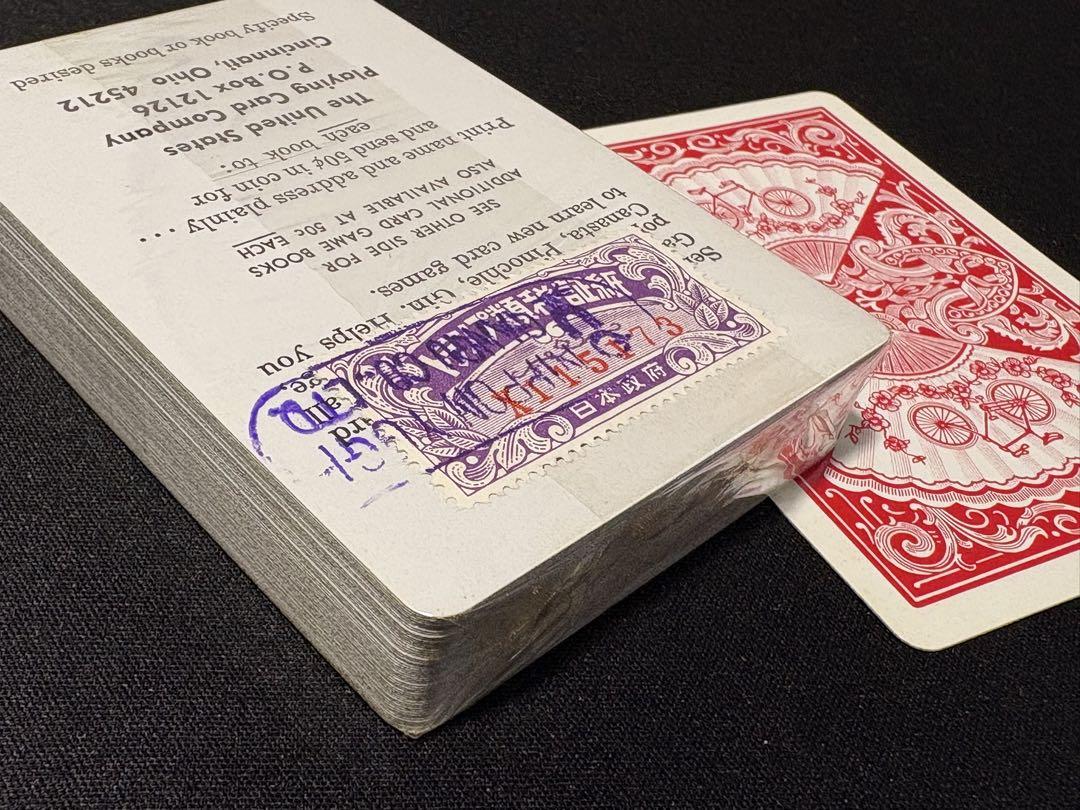 Canasta, Pinochle, Gin. Helps you
to learn new card games.
SEE OTHER SIDE FOR
ADDITIONAL CARD GAME BOOKS
ALSO AVAILABLE AT 50c EACH
Print name and address plainly ...
and send 50¢ in coin for
each book to:
The United States
Playing Card Company
P.O. Box 12126
Cincinnati, Ohio 45212
Specify book or books desired
類税証紙
日本政府